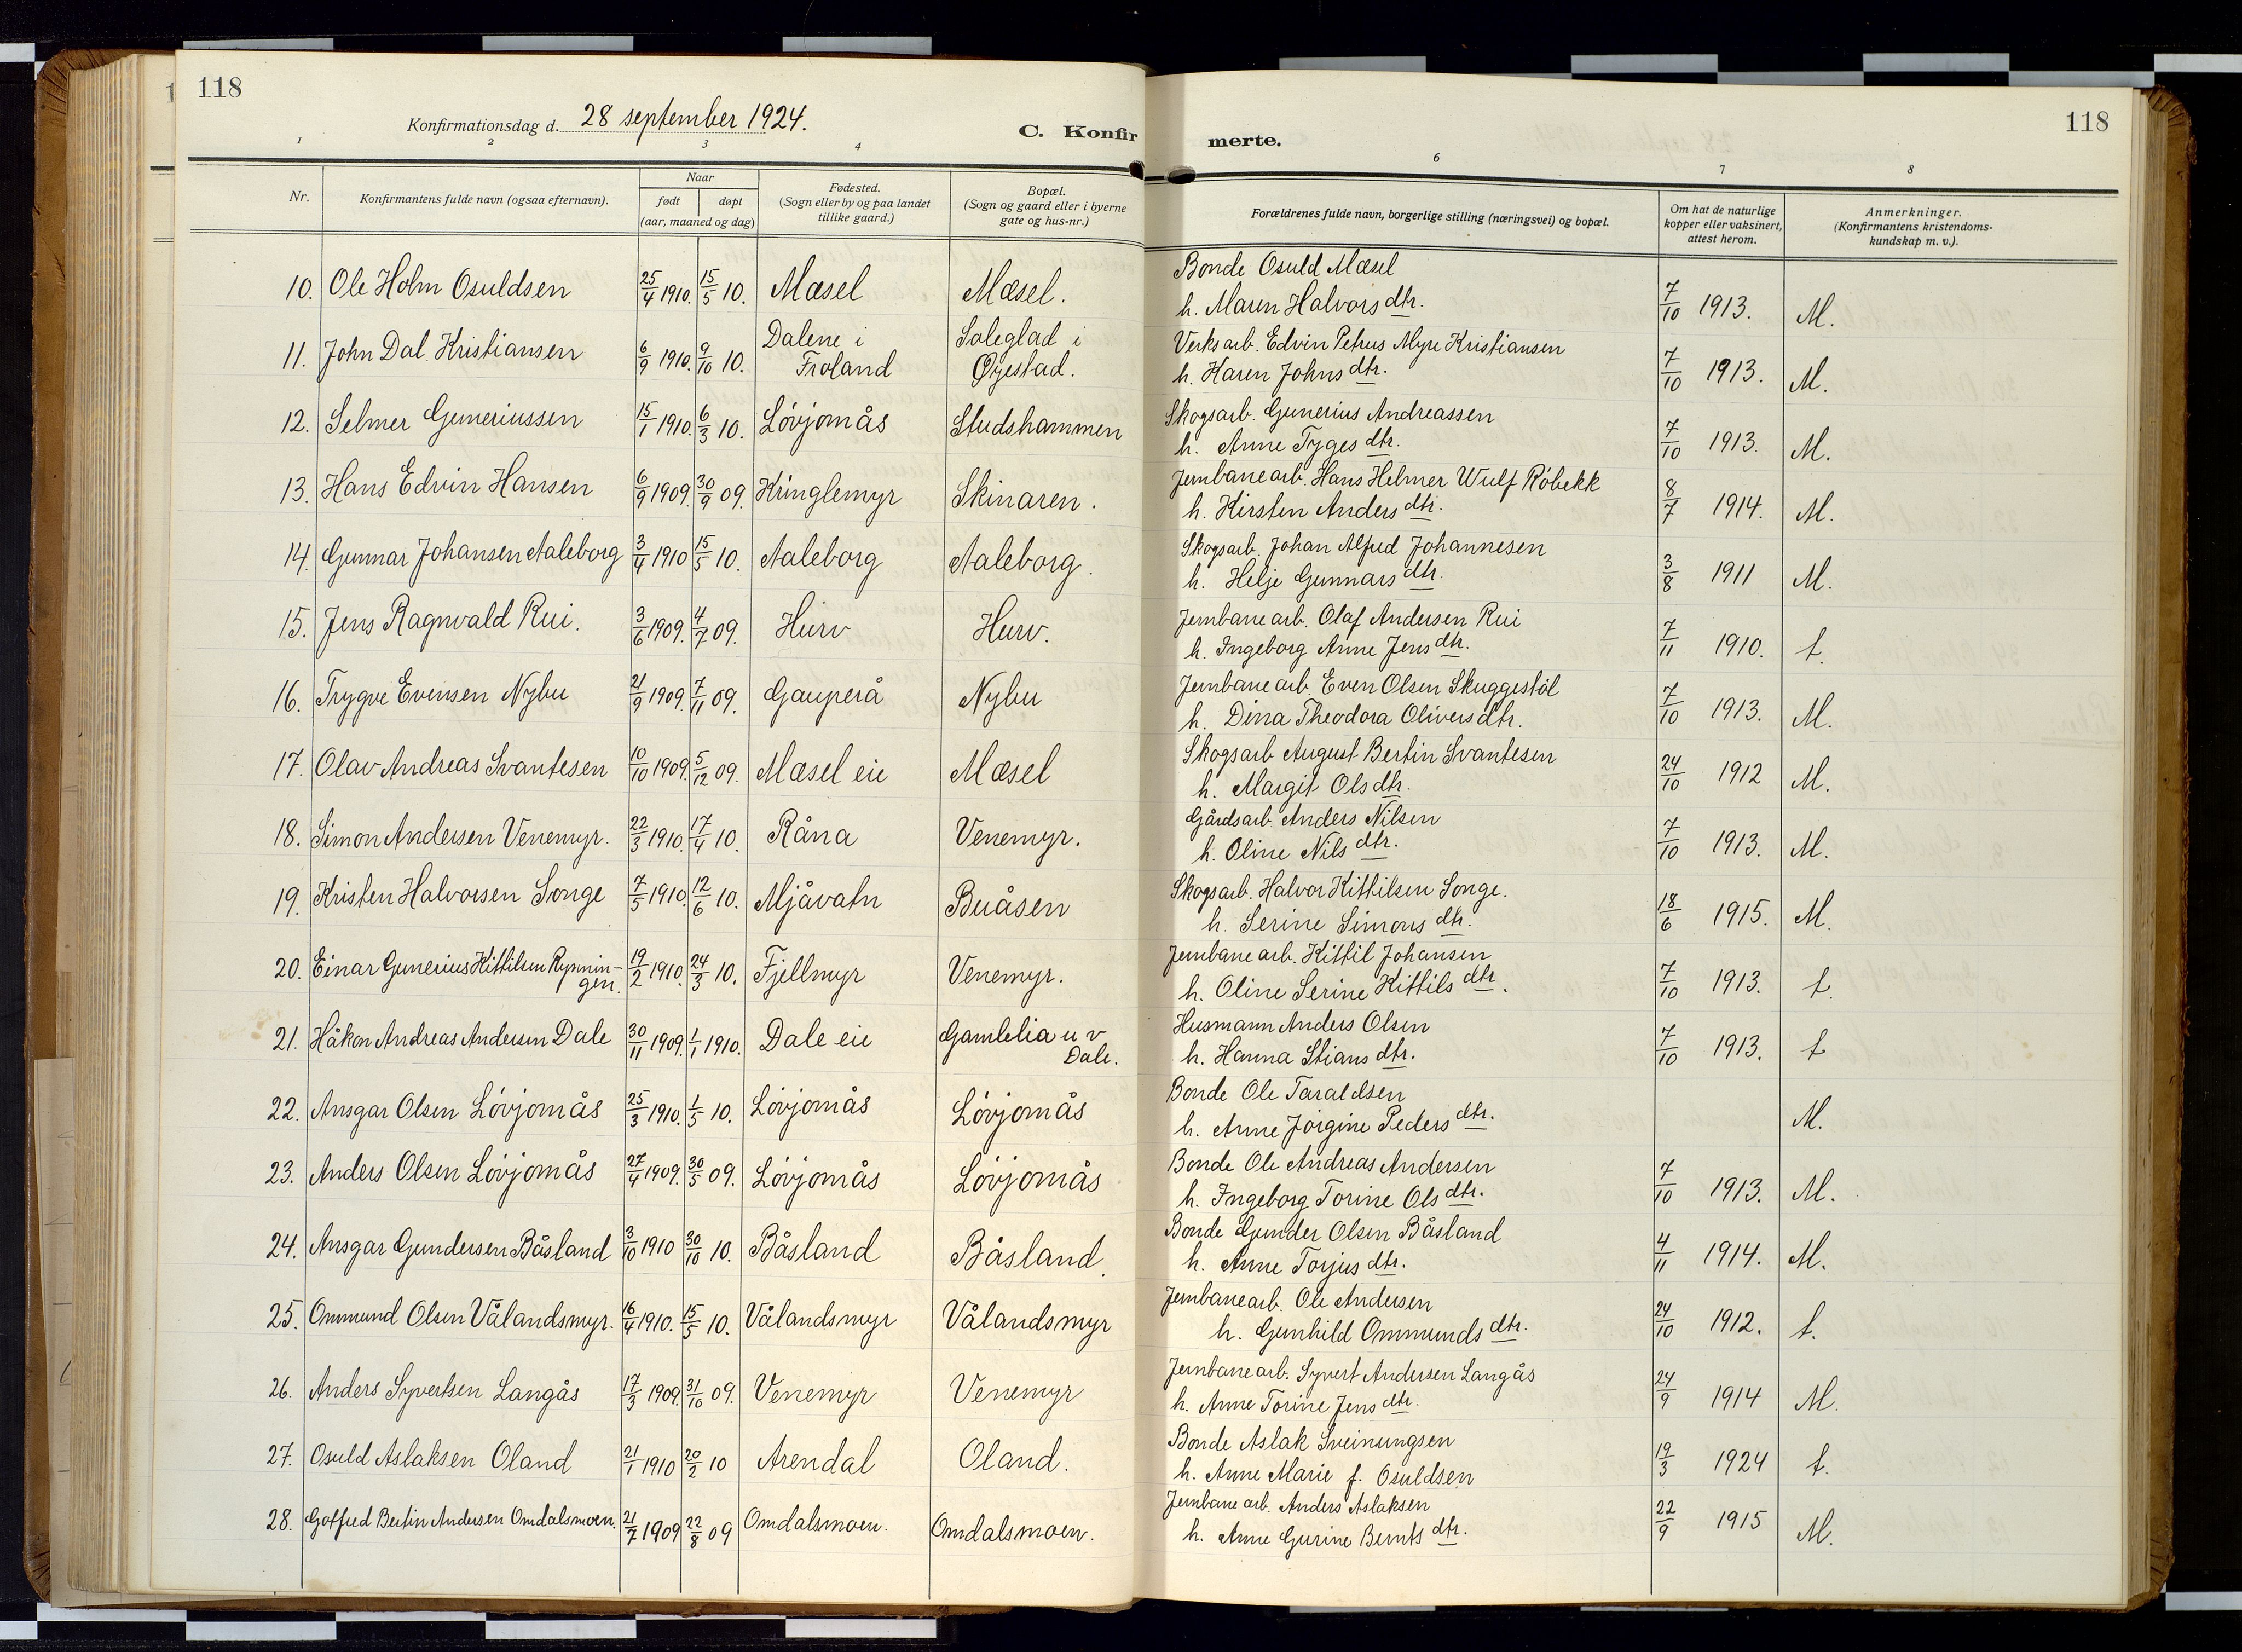 118
Konfirmationsdag d. 28 september 1924.
C. Konfir
merte.
118
1 2 3 4 6 7 8
Nr.
Konfirmantens fulde navn (ogsaa efternavn).
Naar
født døpt
(aar, maaned og dag)
Fødested.
(Sogn eller by og paa landet
tillike gaard.)
Bopæl.
(Sogn og gaard eller i byerne
gate og hus-nr.)
Forældrenes fulde navn, borgerlige stilling (næringsvei) og bopæl.
Om hat de naturlige
kopper eller vaksinert,
attest herom.
Anmerkninger.
(Konfirmantens kristendoms-
kundskap m. v.).
Bonde Osuld Mæsel
10. Ole Holm Osuldsen 25/4 1910. 15/5 10. Mæsel Mæsel. h. Maren Halvors dtr. 7/10 1913. M.
Dalene i Soleglad i Verksarb. Edvin Petrus Myre Kristiansen
11. John Dal Kristiansen 6/9 1910. 9/10 10. Froland Øyestad. h. Karen Johns dtr. 7/10 1913. M.
Skogsarb. Gunerius Andreassen
12. Selmer Guneriussen 15/1 1910. 6/3 10. Lövjomås Studshammen h. Anne Tyges dtr. 7/10 1913. M.
Jernbanearb. Hans Helmer Wulf Röbekk
13. Hans Edvin Hansen 6/9 1909. 30/9 09. Kringlemyr Skinaren. h. Kirsten Anders dtr. 8/7 1914. M.
Skogsarb. Johan Alfred Johannesen
14. Gunnar Johansen Aaleborg 3/4 1910 15/5 10. Aaleborg Aaleborg. h. Helje Gunnars dtr. 3/8 1911 M.
Jernbanearb. Olaf Andersen Rui
15. Jens Ragnvald Rui. 3/6 1909. 4/7 09. Hurv Hurv. h. Ingeborg Anne Jens dtr. 7/11 1910. t.
Jernbanearb. Even Olsen Skuggestöl
16. Trygve Evensen Nybu 21/9 1909. 7/11 09. Gauperå Nybu h. Dina Theodora Olivers dtr. 7/10 1913. M.
Skogsarb. August Bertin Svantesen
17. Olav Andreas Svantesen 10/10 1909. 5/12 09. Mæsel eie Mæsel h. Margit Ols dtr. 24/10 1912 M.
Gårdsarb. Anders Nilsen
18. Simon Andersen Venemyr. 22/3 1910. 17/4 10. Råna Venemyr. h. Oline Nils dtr. 7/10 1913. M.
Skogsarb. Halvor Kittilsen Songe.
19. Kristen Halvorsen Songe 7/5 1910. 12/6 10. Mjåvatn Buåsen h. Serine Simons dtr. 18/6 1915. M.
Jernbanearb. Kittil Johansen
20. Einar Gunerius Kittilsen Rynnin- 19/2 1910. 24/3 10. Fjellmyr Venemyr. h. Oline Serine Kittils dtr. 7/10 1913. t.
gen.
Husmann Anders Olsen
21. Håkon Andreas Andersen Dale 30/11 1909. 1/1 1910. Dale eie Gamlelia u v h. Hanna Stians dtr. 7/10 1913. t
Dale.
Bonde Ole Taraldsen
22. Ansgar Olsen Lövjomås 25/3 1910. 1/5 10. Lövjomås Lövjomås h. Anne Jörgine Peders dtr. M.
Bonde Ole Andreas Andersen
23. Anders Olsen Lövjomås 27/4 1909. 30/5 09. Lövjomås Lövjomås h. Ingeborg Torine Ols dtr. 7/10 1913. M.
Bonde Gunder Olsen Båsland
24. Ansgar Gundersen Båsland 3/10 1910 30/10 10. Båsland Båsland. h. Anne Torjus dtr. 4/11 1914. M.
Jernbanearb. Ole Andersen
25. Ommund Olsen Vålandsmyr. 16/4 1910. 15/5 10. Vålandsmyr Vålandsmyr h. Gunhild Ommunds dtr. 24/10 1912. t.
Jernbanearb. Syvert Andersen Langås
26. Anders Syvertsen Langås 17/3 1909. 31/10 09. Venemyr Venemyr h. Anne Torine Jens dtr. 24/9 1914 M.
Bonde Aslak Sveinungsen
27. Osuld Aslaksen Oland 21/1 1910 20/2 10 Arendal Oland. h. Anne Marie f. Osuldsen 19/3 1924 t.
Jernbanearb. Anders Aslaksen
28. Gotfred Bertin Andersen Omdalsmoen. 21/7 1909 22/8 09 Omdalsmoen. Omdalsmoen. h. Anne Gurine Bernts dtr. 22/9 1915 M.